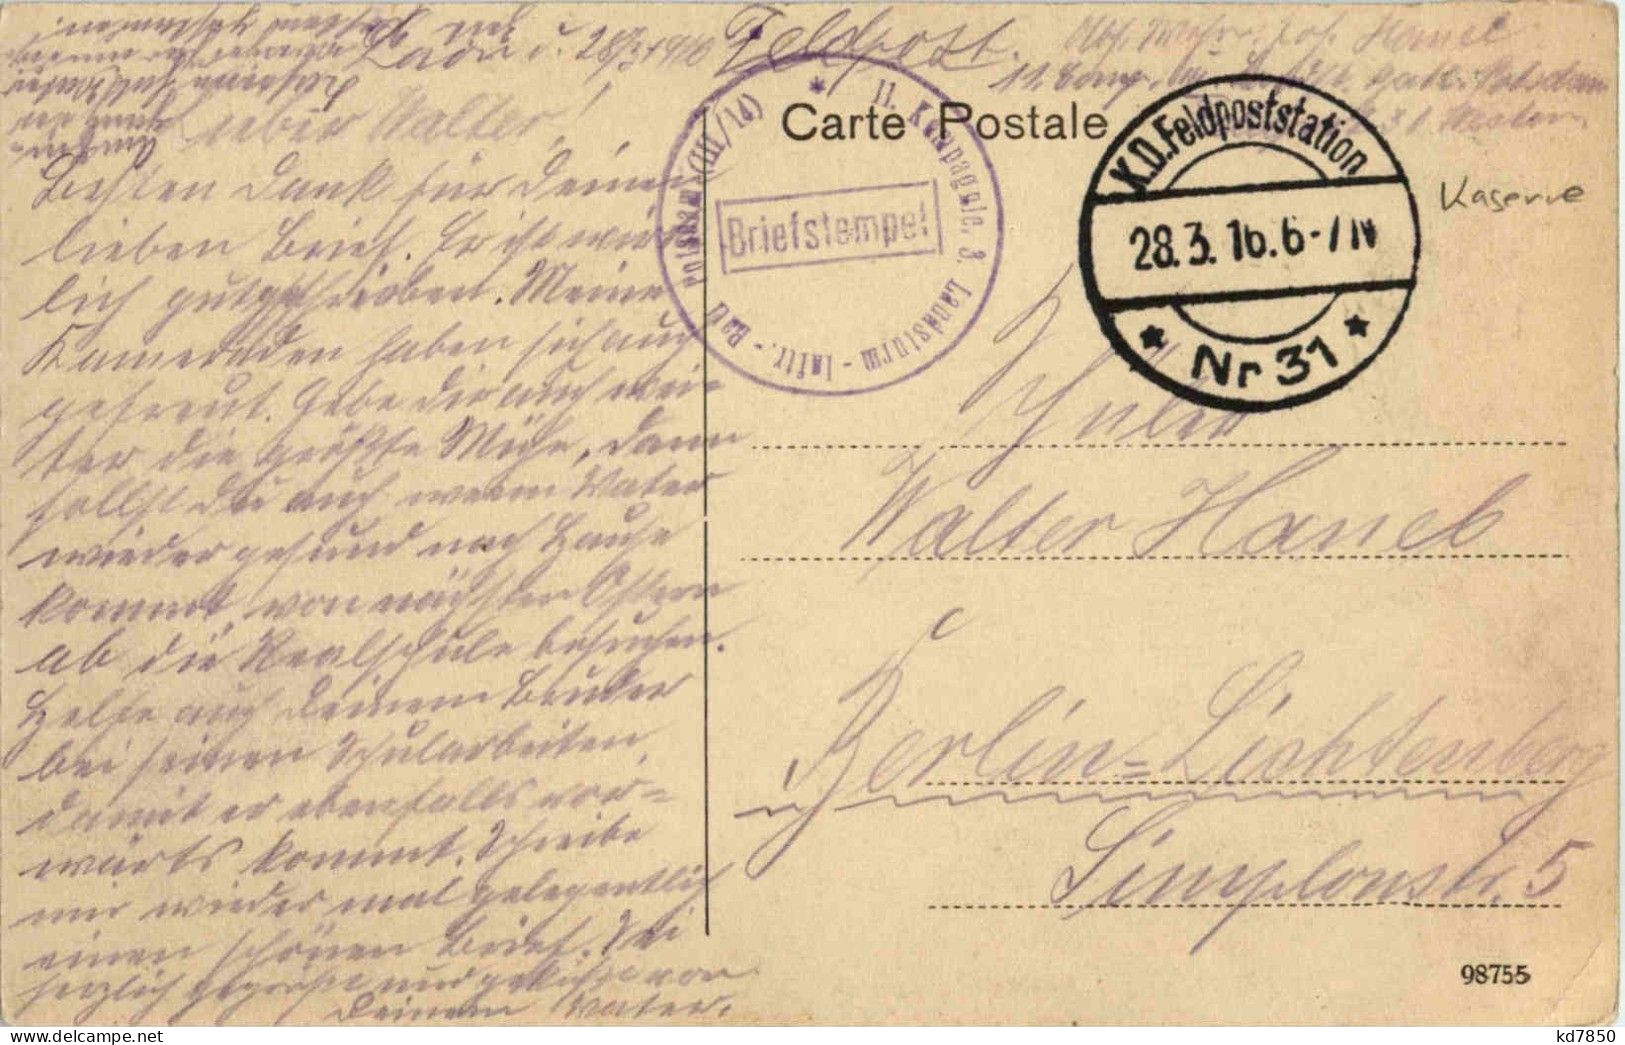 Laon d. 28/3 1916 Feldpost.
Carte Postale
11. Kompagnie. 3. Landsturm-Inftr.-Bat. Potsdam (III/14)
Briefstempel
K.D.Feldpoststation
28.3.16.6-7 N
Nr 31
Kaserne
Lieber Walter!
Besten Dank für Deinen
lieben Brief. Er ist wirk-
lich gut geschrieben. Meine
Kameraden haben sich auch
gefreut. Gebe dir auch wei-
ter die größte Mühe, dann
sollst du auch wenn Vater
wieder gesund nach Hause
kommt, von nächsten Ostern
ab die Realschule besuchen.
Helfe auch Deinem Bruder
bei seinen Schularbeiten,
damit er ebenfalls vor-
wärts kommt. Schreibe
mir wieder mal gelegentlich
einen schönen Brief. Sei
herzlich gegrüßt und geküßt von
Deinem Vater.
Schüler
Walter Hanel
Berlin-Lichtenberg
Simplonstr. 5
98755
kd7850